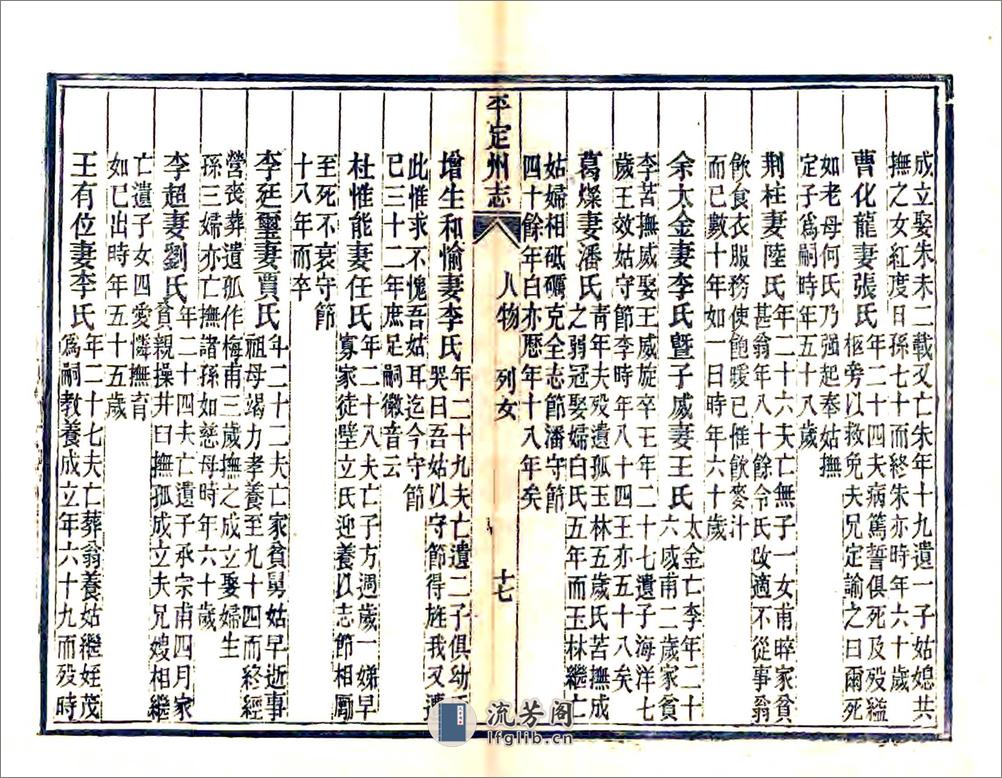 成立娶朱未二載又亡朱年十九遺一子姑媳共
撫之女紅度日孫七十而終朱亦時年六十歲
曹化龍妻張氏
年二十四夫病篤誓俱死及歿縊
柩旁以救免夫兄定諭之曰爾死
如老母何氏乃强起奉姑撫
定子爲嗣時年五十八歲
荆柱妻陸氏
年二十六夫亡無子一女甫晬家貧
甚翁年八十餘令氏改適不從事翁
飲食衣服務使飽暖己惟飲麥汁
而已數十年如一日時年六十歲
余太金妻李氏暨子威妻王氏
太金亡李年二十
六威甫二歲家貧
李苦撫威娶王威旋卒王年二十七遺子海洋七
歲王效姑守節李時年八十四王亦五十八矣
葛燦妻潘氏
青年夫歿遺孤玉林五歲氏苦撫成
之弱冠娶婦白氏五年而玉林繼亡
姑婦相砥礪克全志節潘守節
四十餘年白亦歷年十八年矣
平定州志
人物
列女
十七
增生和愉妻李氏
年二十九夫亡遺二子俱幼
哭曰吾姑以守節得旌我又遭
此惟求不愧吾姑耳迄今守節
已三十二年庶足嗣徽音云
杜惟能妻任氏
年二十八夫亡子方週歲一娣早
寡家徒壁立氏迎養以志節相勵
至死不衰守節
十八年而卒
李廷璽妻賈氏
年二十二夫亡家貧舅姑早逝事
祖母竭力孝養至九十四而終經
營喪葬遺孤作梅甫三歲撫之成立娶婦生
孫三婦亦亡撫諸孫如慈母時年六十歲
李超妻劉氏
年二十四夫亡遺子承宗甫四月家
貧親操井臼撫孤成立夫兄嫂相繼
亡遺子女四愛憐撫育
如己出時年五十五歲
王有位妻李氏
年二十七夫亡葬翁養姑繼姪茂
爲嗣教養成立年六十九而歿時
流芳阁
lfglib.cn